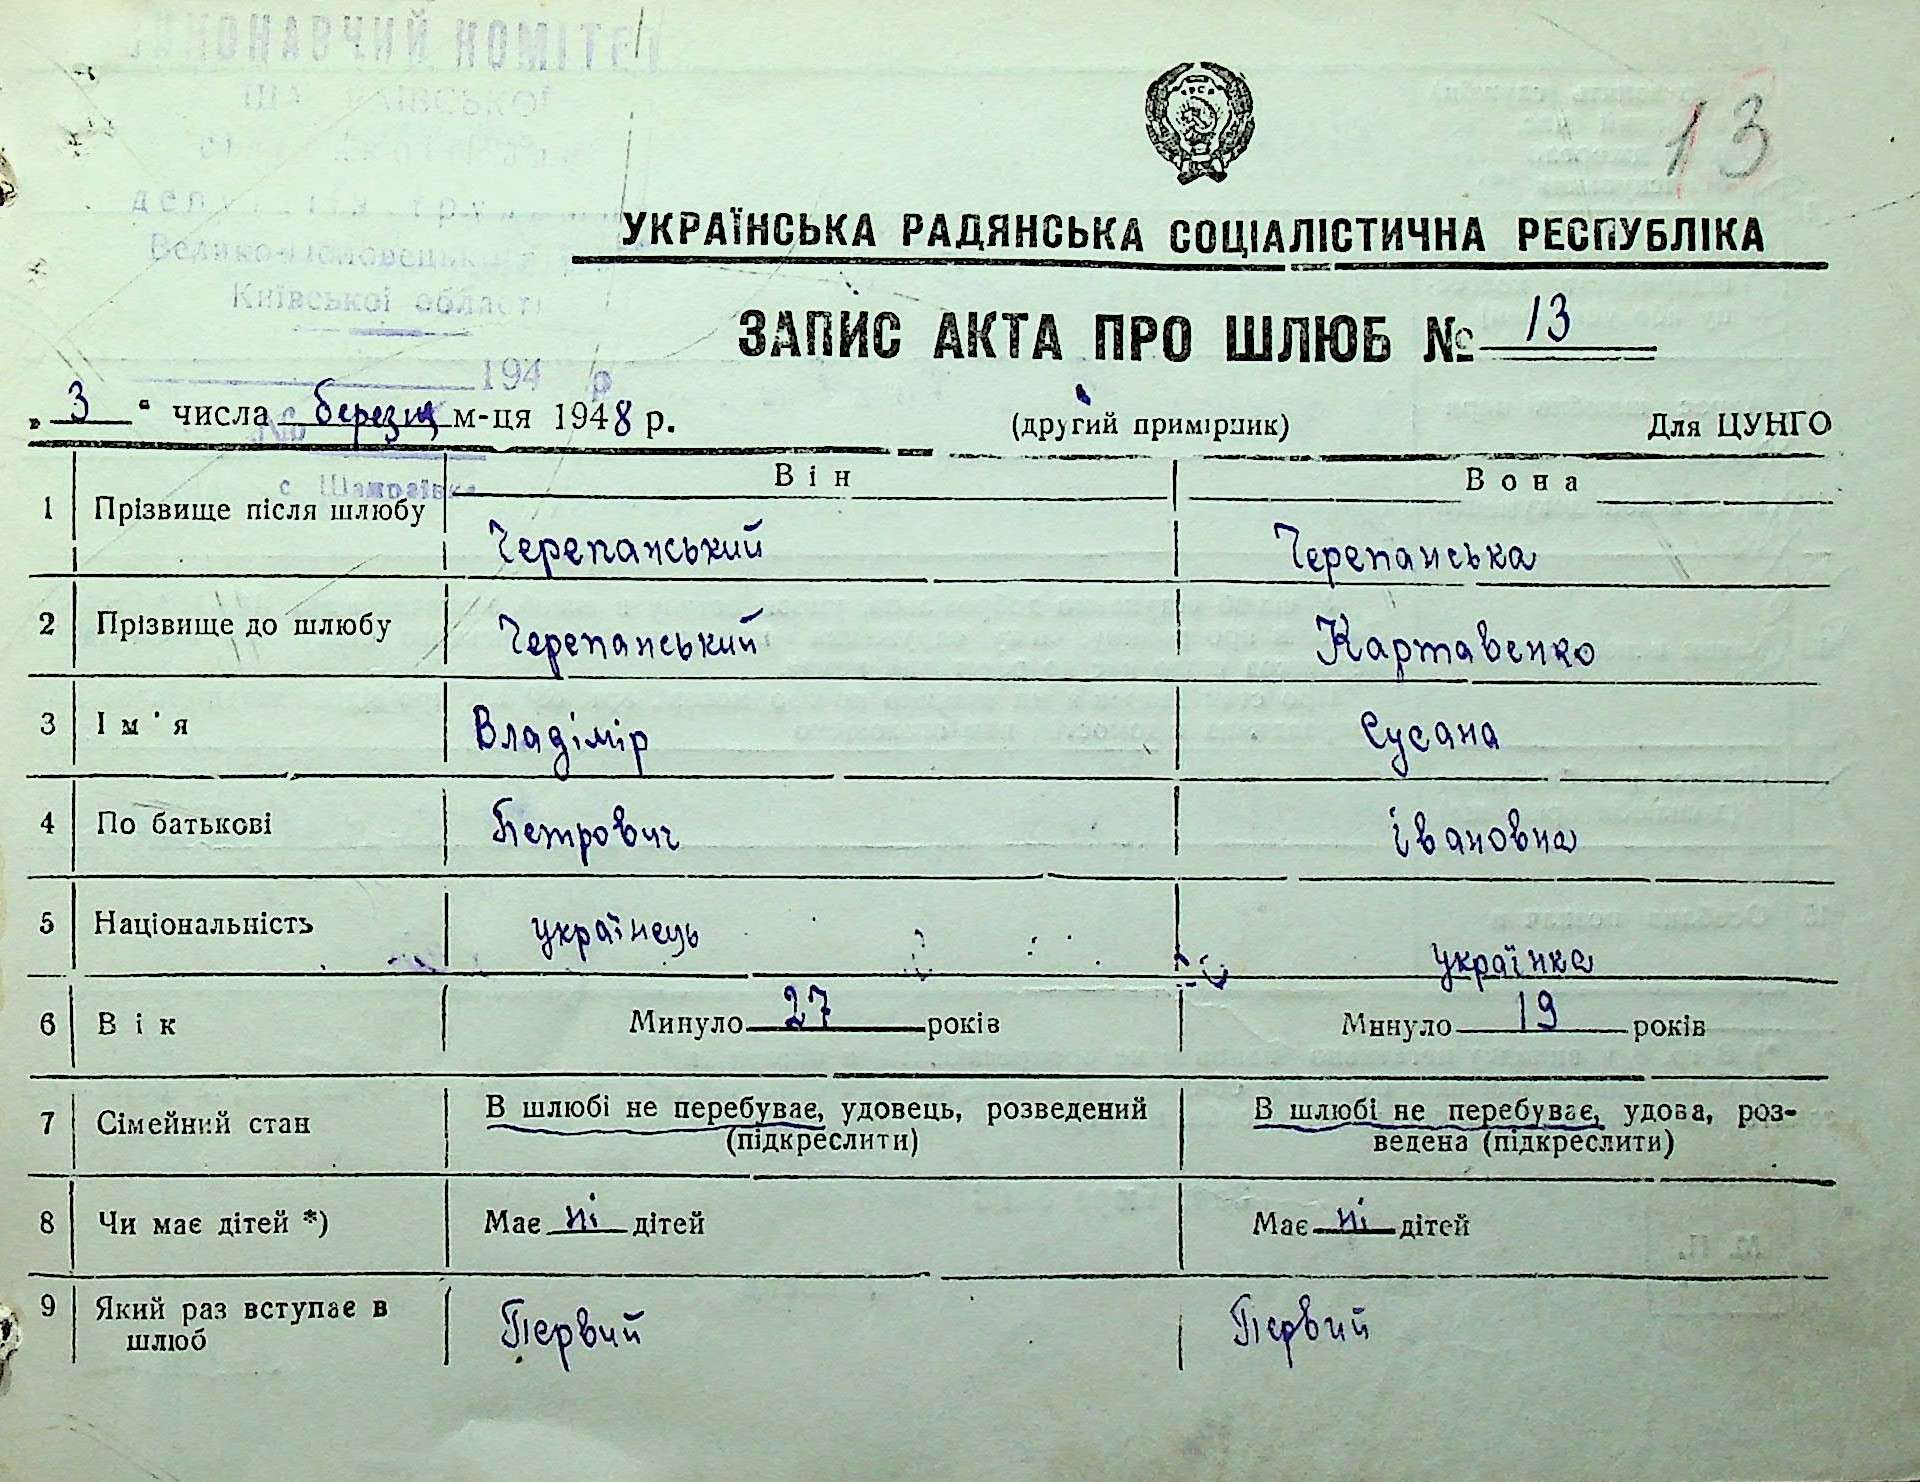 ВИКОНАВЧИЙ КОМІТЕТ
13
УКРАЇНСЬКА РАДЯНСЬКА СОЦІАЛІСТИЧНА РЕСПУБЛІКА
Київської області
ЗАПИС АКТА ПРО ШЛЮБ № 13
194 р
„ 3 “ числа березня м-ця 1948 р. (другий примірник) Для ЦУНГО
Він Вона
с Шамраївка
1 Прізвище після шлюбу Черепанський Черепанська
2 Прізвище до шлюбу Черепанський Картавенко
3 Ім'я Владімір Сусана
4 По батькові Петрович Івановна
5 Національність українець українка
6 Вік Минуло 27 років Минуло 19 років
7 Сімейний стан В шлюбі не перебуває, удовець, розведений (підкреслити) В шлюбі не перебуває, удова, роз-
ведена (підкреслити)
8 Чи має дітей *) Має ні дітей Має ні дітей
9 Який раз вступає в шлюб Первий Первий